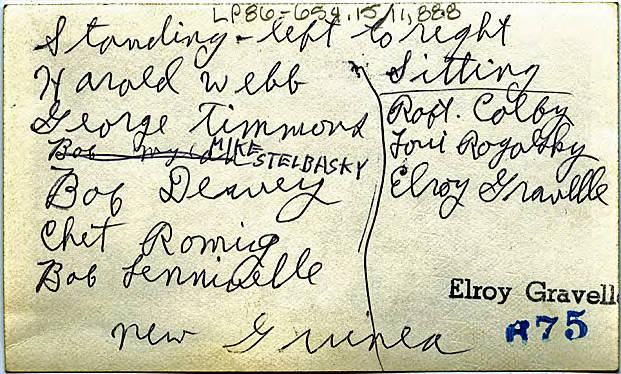 LP86-654.15/1,888
Standing - left to right
Harold Webb
George Timmond
Bob MIKE STELBASKY
Bob Deavey
Chet Romig
Bob Lennivelle
New Guinea
Sitting
Robt. Colby
Loui Rogalsky
Elroy Gravelle
Elroy Gravell
75